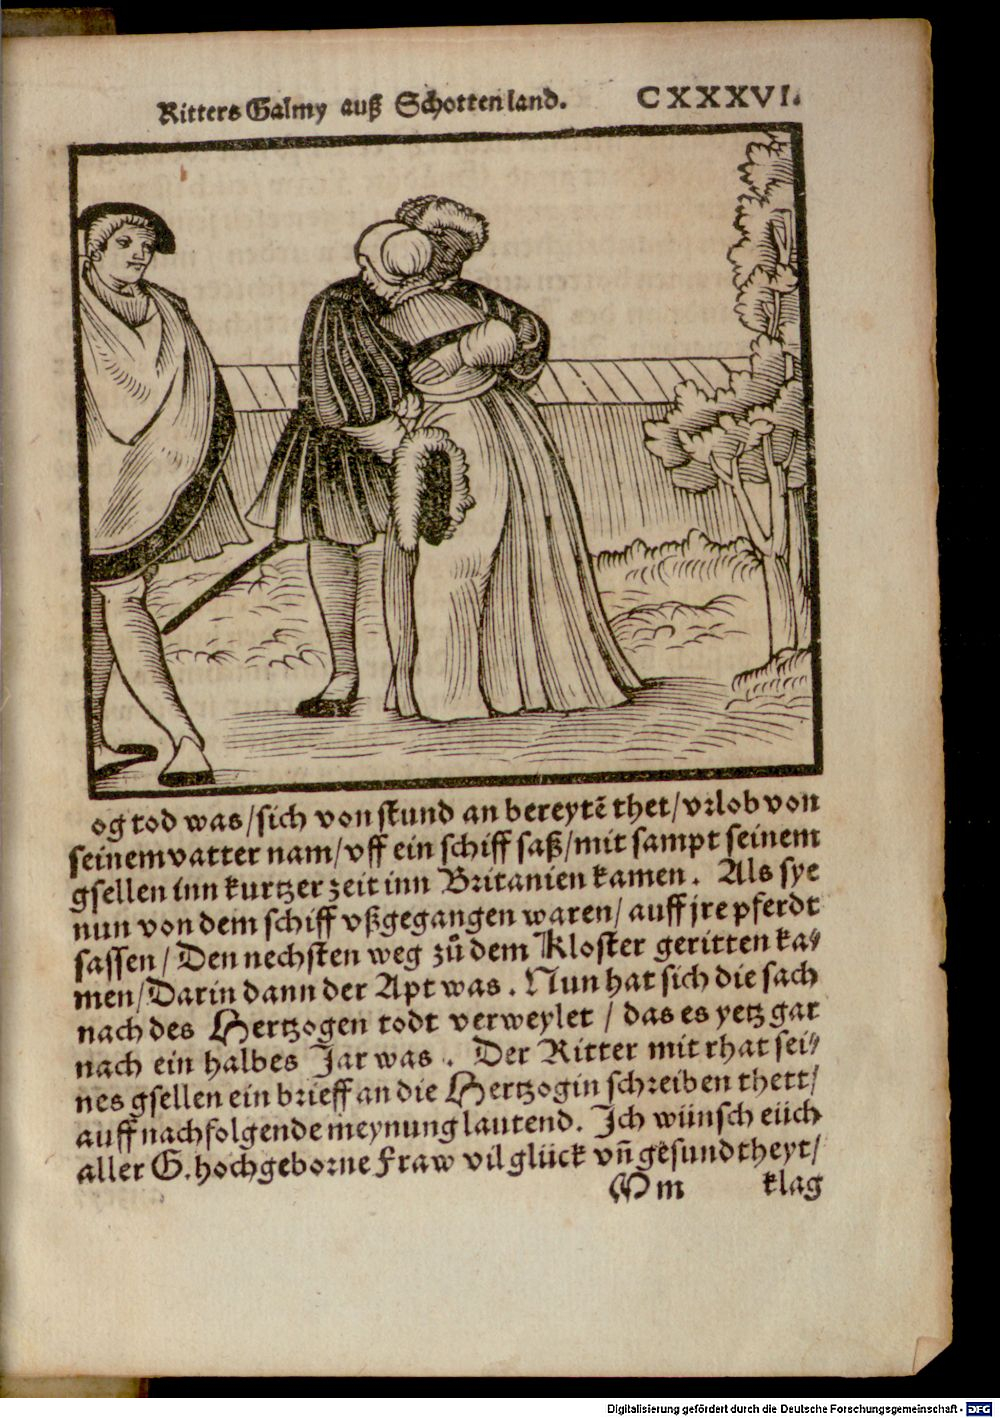 Ritters Galmy auß Schottenland. CXXXVI.
og tod was/sich von stund an bereytẽ thet/vrlob von
seinem vatter nam/vff ein schiff saß/mit sampt seinem
gsellen inn kurtzer zeit inn Britanien kamen. Als sye
nun von dem schiff vßgegangen waren/auff jre pferdt
sassen/Den nechsten weg zů dem Kloster geritten ka⸗
men/Darin dann der Apt was. Nun hat sich die sach
nach des Hertzogen todt verweylet/das es yetz gar
nach ein halbes Jar was. Der Ritter mit rhat sei⸗
nes gsellen ein brieff an die Hertzogin schreiben thett/
auff nachfolgende meynung lautend. Ich wünsch eüch
aller G. hochgeborne Fraw vil glück vñ gesundtheyt/
Mm klag
Digitalisierung gefördert durch die Deutsche Forschungsgemeinschaft - DFG